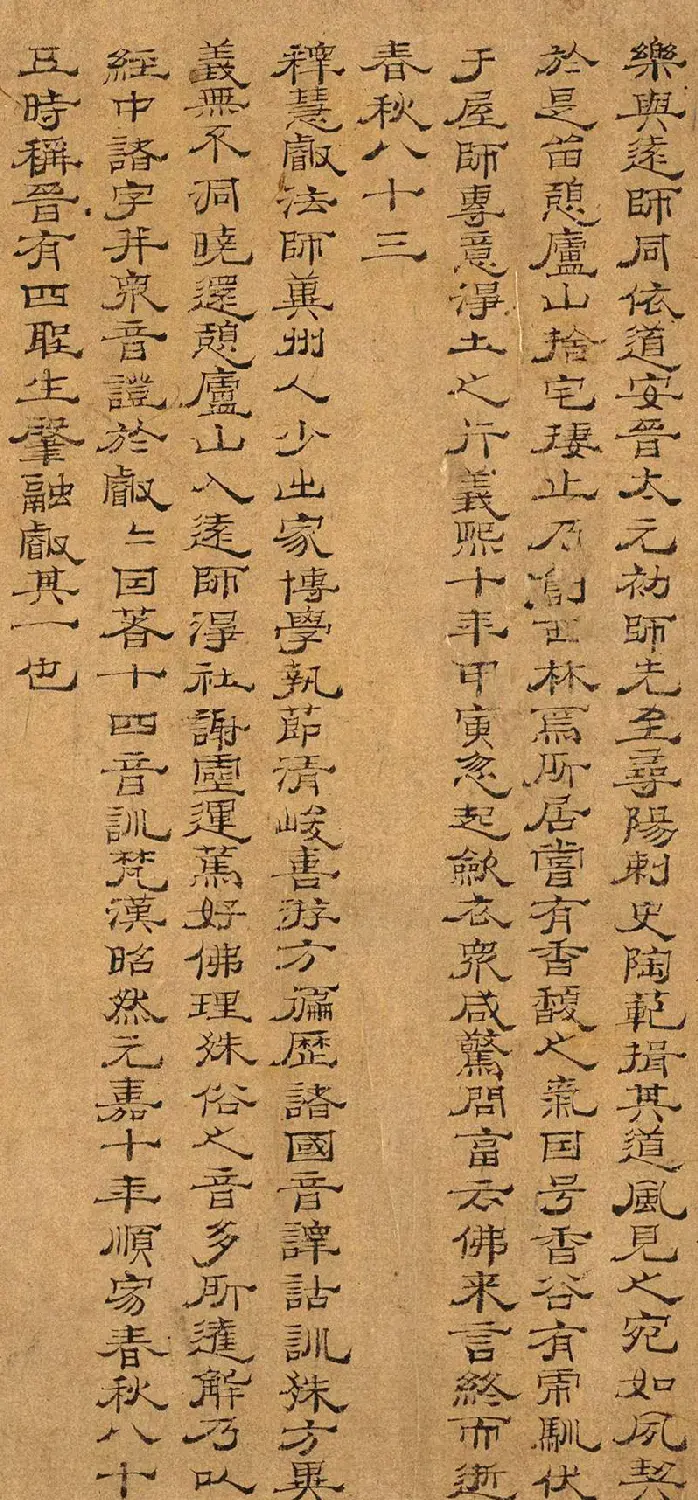 樂與遠師同依道安晉太元初師先至尋陽刺史陶範揖其道風見之宛如夙契
於是留憩廬山捨宅棲止乃創西林焉所居嘗有香馥之氣因号香谷有虎馴伏
于屋師專意淨土之行義熙十年甲寅忽起歛衣衆咸驚問富云佛来言終而逝
春秋八十三
釋慧叡法師冀州人少出家博學執節清峻喜游方徧歷諸國音譯詁訓殊方異
義無不洞曉還憩廬山入遠師淨社謝靈運篤好佛理殊俗之音多所達解乃以
經中諸字并衆音證於叡〻因著十四音訓梵漢昭然元嘉十年順寂春秋八十
五時稱晉有四聖生肇融叡其一也